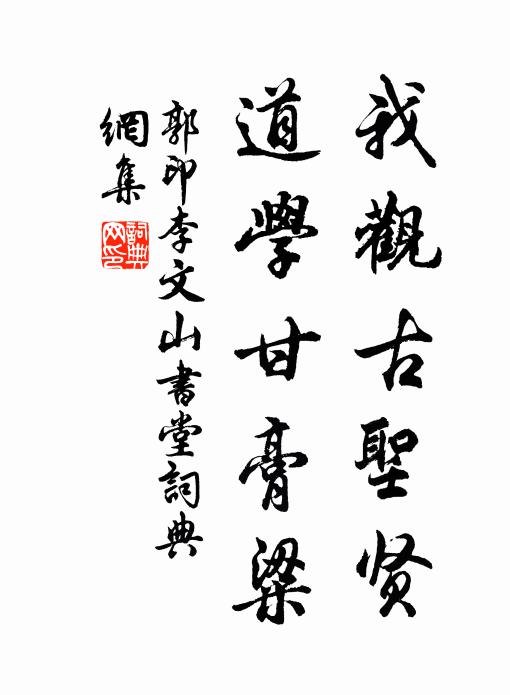 我觀古聖贤
道學甘膏粱
郭印李文山書堂詞典
網集
詞典
网印